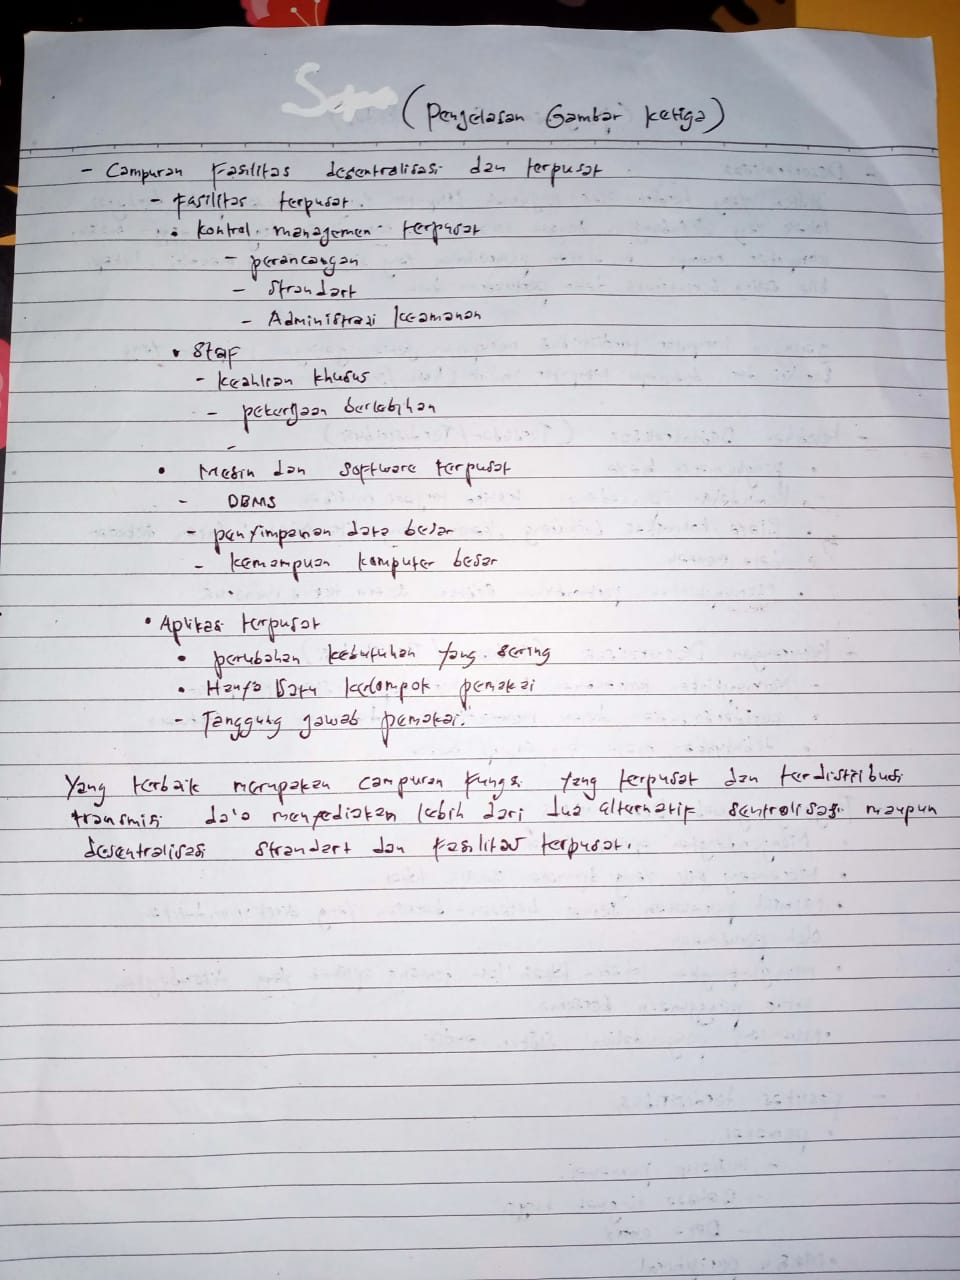 (Penjelasan Gambar ketiga)
- Campuran Fasilitas desentralisasi dan terpusat
- Fasilitas terpusat.
• kontrol managemen terpusat
- perancangan
- strandart
- Administrasi keamanan
• Staf
- keahlian khusus
- pekerjaan berlebihan
-
• Mesin dan software terpusat
- DBMS
- penyimpanan data besar
- kemampuan komputer besar
• Aplikasi terpusat
• perubahan kebutuhan yang sering
• Hanya satu kelompok pemakai
- Tanggung jawab pemakai.
Yang terbaik merupakan campuran fungsi yang terpusat dan terdistribusi
transmisi data menyediakan lebih dari dua alternatif sentralisasi maupun
desentralisasi strandart dan fasilitas terpusat.